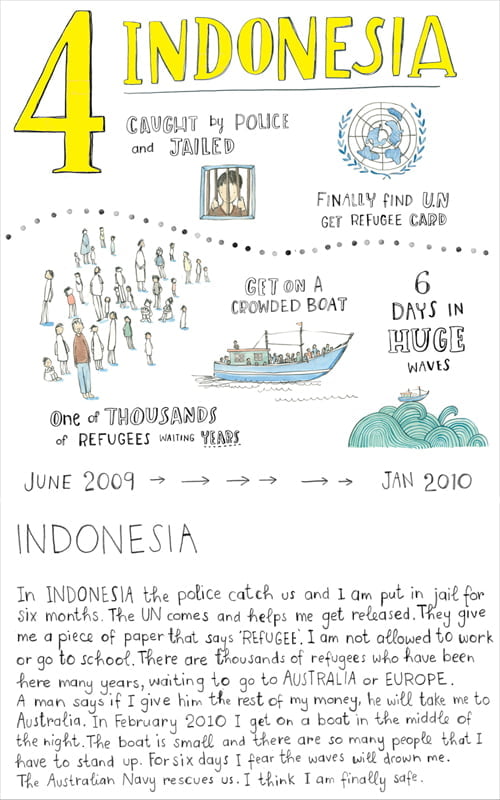 4 INDONESIA
CAUGHT by POLICE
and JAILED
FINALLY FIND U.N
GET REFUGEE CARD
GET ON A
CROWDED BOAT
6
DAYS IN
HUGE
WAVES
One of THOUSANDS
of REFUGEES WAITING YEARS
JUNE 2009 → → → → → → JAN 2010
INDONESIA
In INDONESIA the police catch us and I am put in jail for
six months. The UN comes and helps me get released. They give
me a piece of paper that says 'REFUGEE'. I am not allowed to work
or go to school. There are thousands of refugees who have been
here many years, waiting to go to AUSTRALIA or EUROPE.
A man says if I give him the rest of my money, he will take me to
Australia. In February 2010 I get on a boat in the middle of
the night. The boat is small and there are so many people that I
have to stand up. For six days I fear the waves will drown me.
The Australian Navy rescues us. I think I am finally safe.